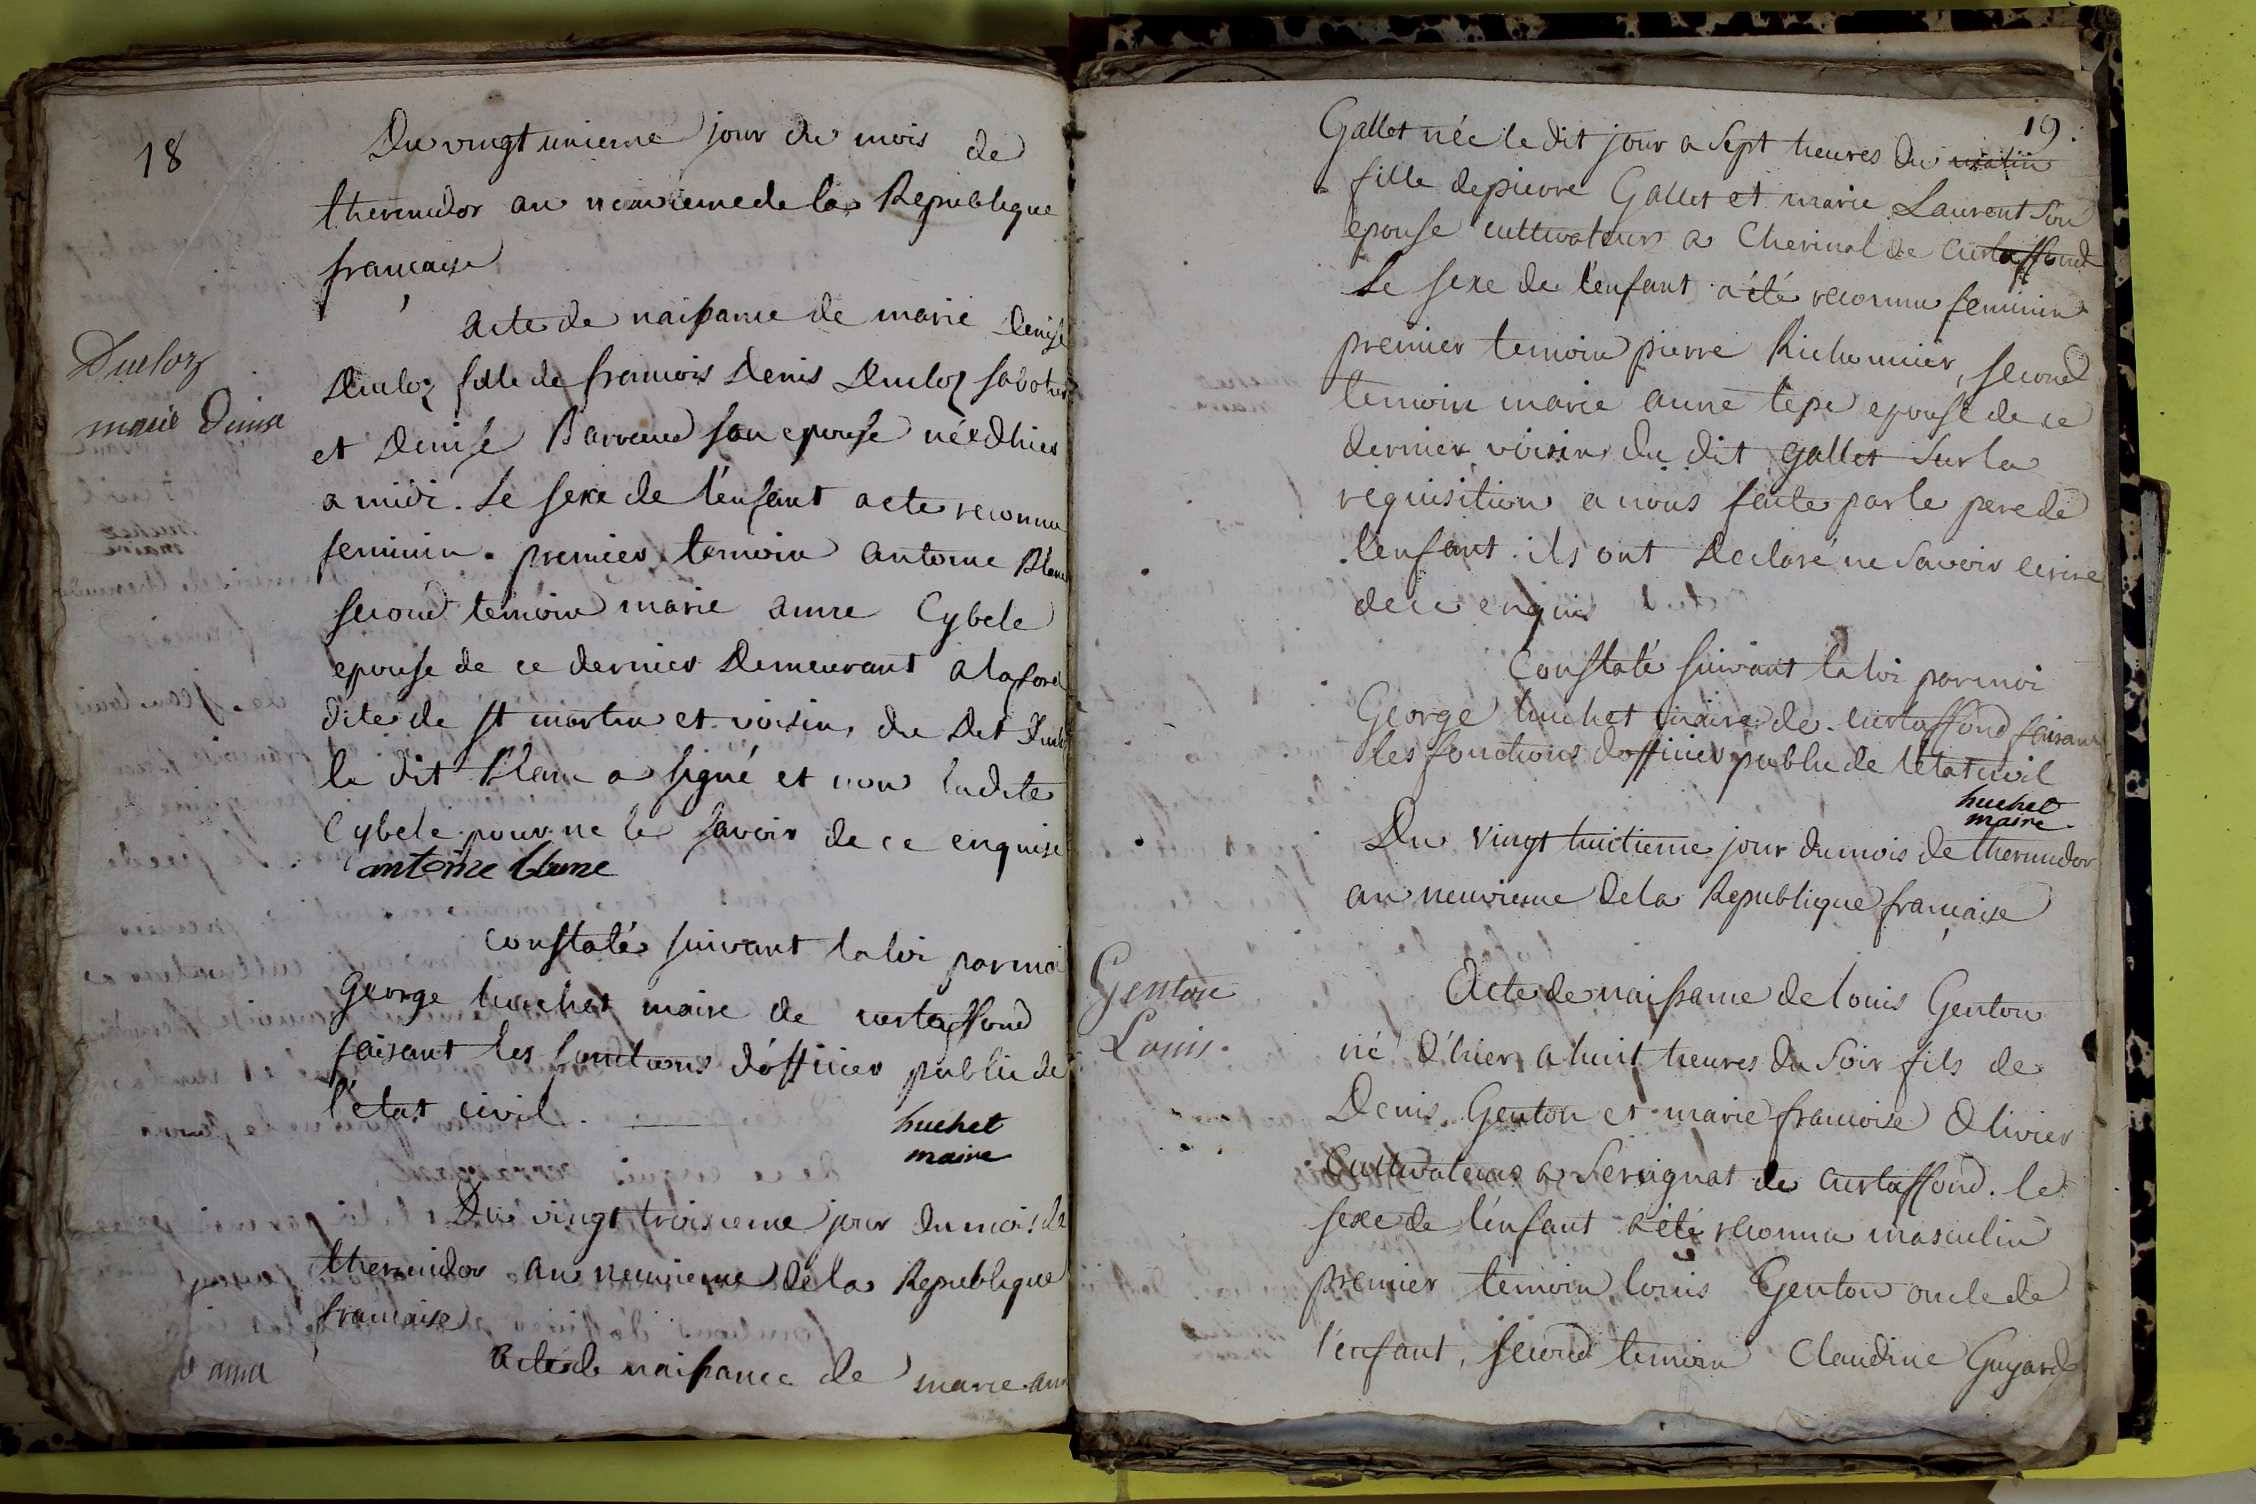 18
Du vingt unieme jour du mois de
thermidor an neuvieme de la Republique
francaise
Acte de naissance de marie Denise
Ducloz
marie Denise
Ducloz fille de francois Denis Ducloz sabotier
et Denise Barraud son epouse née dhier
a midi. le sexe de l'enfant a ete reconnu
feminin. premier temoin antoine Blanc
second temoin marie anne Cybele
epouse de ce dernier Demeurant a la foret
dite de st martin et voisins du Dit
le dit Blanc a signé et non ladite
Cybele pour ne le savoir de ce enquise
antoine blanc
constaté suivant la loi par moi
George huchet maire de curtaffond
faisant les fonctions d'officier public de
l'état civil.
huchet
maire
Du vingt troisieme jour du mois de
thermidor an neuvieme de la Republique
francaise
Acte de naissance de marie ann
anna
19.
Gallet née le dit jour a sept heures du matin
fille de pierre Gallet et marie Laurent son
epouse cultivateurs a Cherinal de curtaffond
Le sexe de l'enfant a été reconnu feminin
premier temoin pierre Richonnier, second
temoin marie anne tepe epouse de ce
dernier voisins du dit gallet sur la
requisition a nous faite par le pere de
l'enfant. ils ont Declaré ne savoir ecrire
de ce enquis
Constaté suivant la loi par moi
George huchet maire de curtaffond faisant
les fonctions dofficier public de létat civil
huchet
maire
Du vingt huitieme jour du mois de thermidor
an neuvieme de la Republique francaise
Genton
Louis.
Acte de naissance de louis Genton
né d'hier a huit heures du soir fils de
Denis Genton et marie francoise Olivier
Cultivateurs a Servignat de curtaffond. le
sexe de l'enfant a été reconnu masculin
premier temoin louis Genton oncle de
l'enfant, second temoin Claudine Guyard